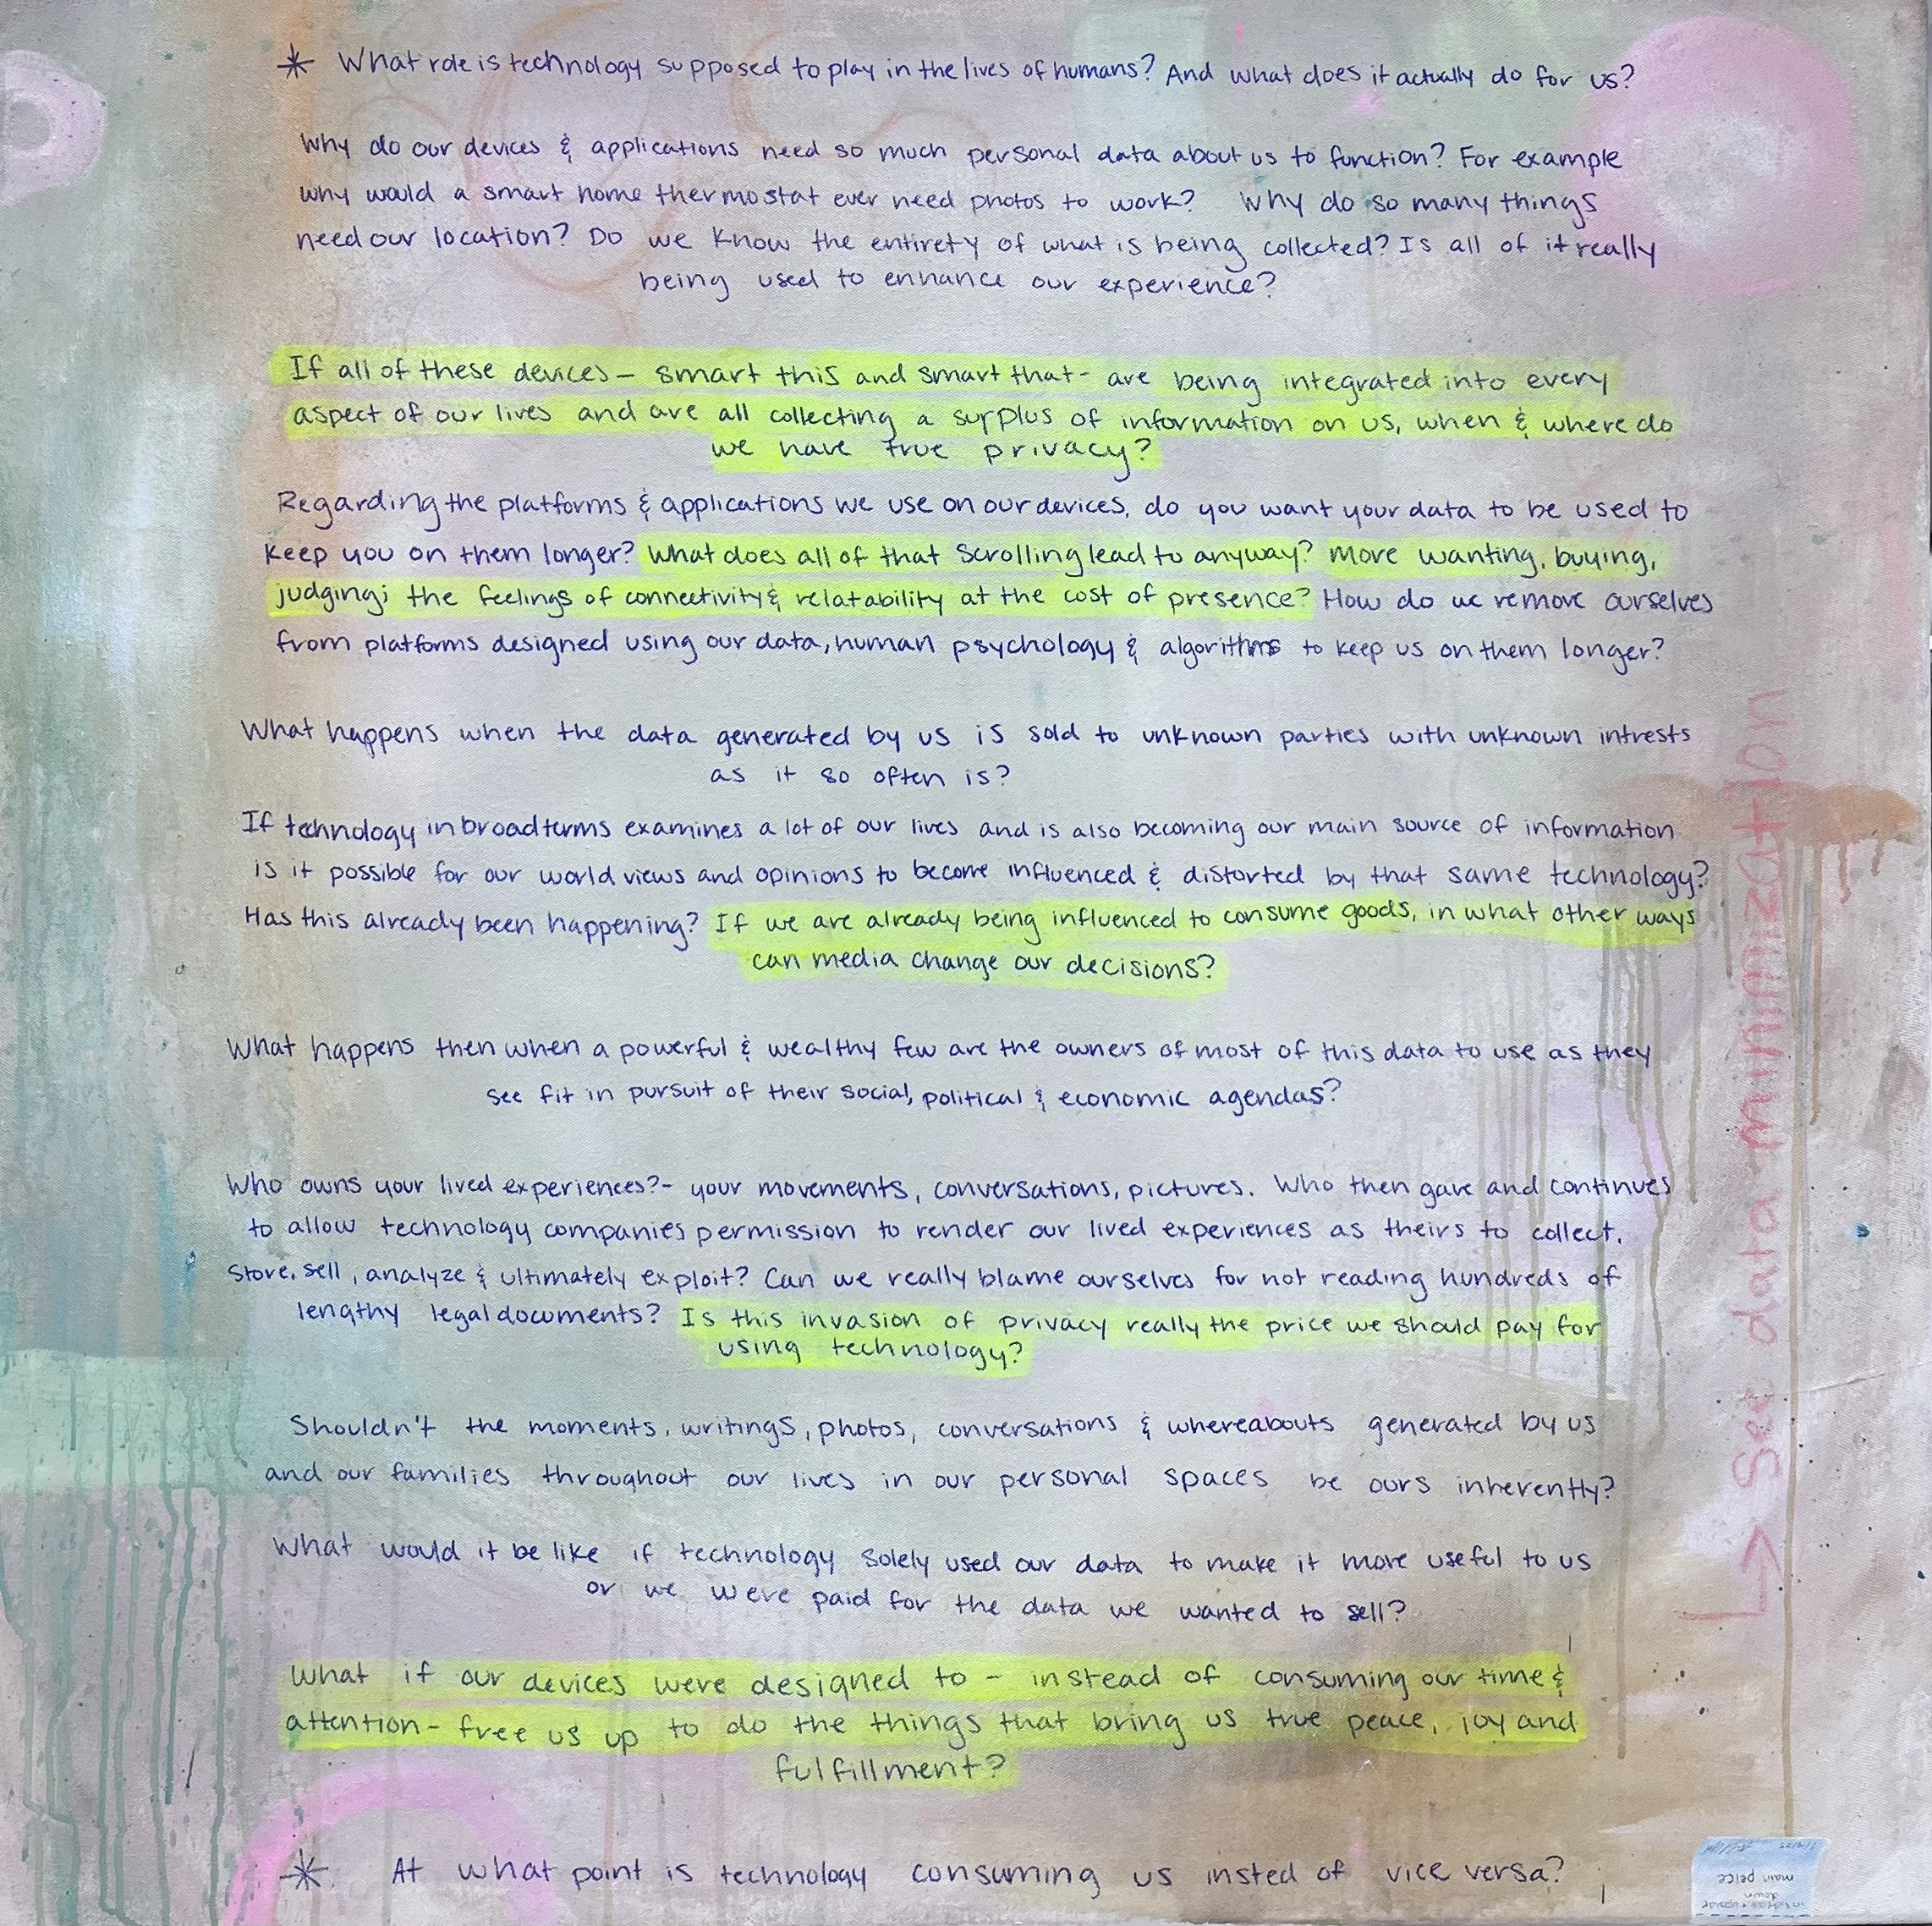 * What role is technology supposed to play in the lives of humans? And what does it actually do for us?
Why do our devices & applications need so much personal data about us to function? For example
why would a smart home thermostat ever need photos to work? Why do so many things
need our location? Do we know the entirety of what is being collected? Is all of it really
being used to enhance our experience?
If all of these devices – smart this and smart that - are being integrated into every
aspect of our lives and are all collecting a surplus of information on us, when & where do
we have true privacy?
Regarding the platforms & applications we use on our devices, do you want your data to be used to
keep you on them longer? What does all of that scrolling lead to anyway? More wanting, buying,
judging; the feelings of connectivity & relatability at the cost of presence? How do we remove ourselves
from platforms designed using our data, human psychology & algorithms to keep us on them longer?
What happens when the data generated by us is sold to unknown parties with unknown intrests
as it so often is?
If technology in broad terms examines a lot of our lives and is also becoming our main source of information
is it possible for our world views and opinions to become influenced & distorted by that same technology?
Has this already been happening? If we are already being influenced to consume goods, in what other ways
can media change our decisions?
What happens then when a powerful & wealthy few are the owners of most of this data to use as they
see fit in pursuit of their social, political & economic agendas?
Who owns your lived experiences?- your movements, conversations, pictures. Who then gave and continues
to allow technology companies permission to render our lived experiences as theirs to collect,
store, sell, analyze & ultimately exploit? Can we really blame ourselves for not reading hundreds of
lengthy legal documents? Is this invasion of privacy really the price we should pay for
using technology?
Shouldn't the moments, writings, photos, conversations & whereabouts generated by us
and our families throughout our lives in our personal spaces be ours inherently?
What would it be like if technology solely used our data to make it more useful to us
or we were paid for the data we wanted to sell?
What if our devices were designed to – instead of consuming our time &
attention – free us up to do the things that bring us true peace, joy and
fulfillment?
* At what point is technology consuming us insted of vice versa?
→ See data minimization
down
main peice